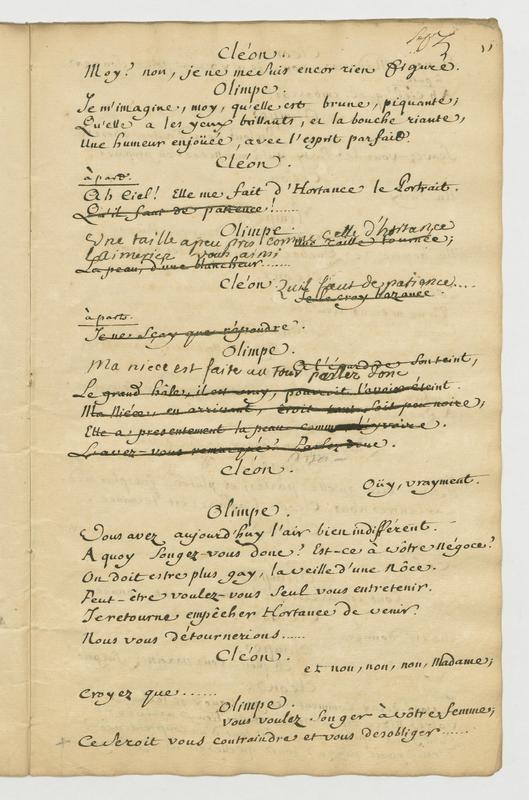 Cléon.
Moy? non, je ne me suis encor rien figuré.
Olimpe.
Je m'imagine, moy, qu'elle est brune, piquante;
Qu'elle a les yeux brillants, et la bouche riante,
Une humeur enjoüée, avec l'esprit parfait.
Cléon.
à part.
Ah Ciel! Elle me fait d'Hortance le Portrait.
Qu'il faut de patience!......
Olimpe.
Une taille a peu pres comme celle d'hortance
Une taille tournée;
l'aimeriez vous ainsi
La peau d'une blancheur......
Cléon.
Qu'il faut de patience....
Je la croy bazanée.
à part.
Je ne sçay que répondre.
Olimpe.
Ma niece est faite au tour parlez donc
son teint,
Le grand hâle, il est vray, pouvoit l'avoir éteint.
Ma Niéce, en arrivant, étoit tant soit peu noire;
Elle a presentement la peau comme l'yvoire.
L'avez-vous remarqué? Parlez donc.
Cléon.
Oüy, vrayment.
Olimpe.
Vous avez aujourd'huy l'air bien indifférent.
A quoy songez-vous donc? Est-ce à vôtre négoce?
On doit estre plus gay, la veille d'une Nôce.
Peut-être voulez-vous seul vous entretenir.
Je retourne empêcher Hortance de venir.
Nous vous détournerions......
Cléon.
et non, non, non, Madame;
Croyez que......
Olimpe.
vous voulez songer à vôtre femme;
Ce seroit vous contraindre et vous desobliger......